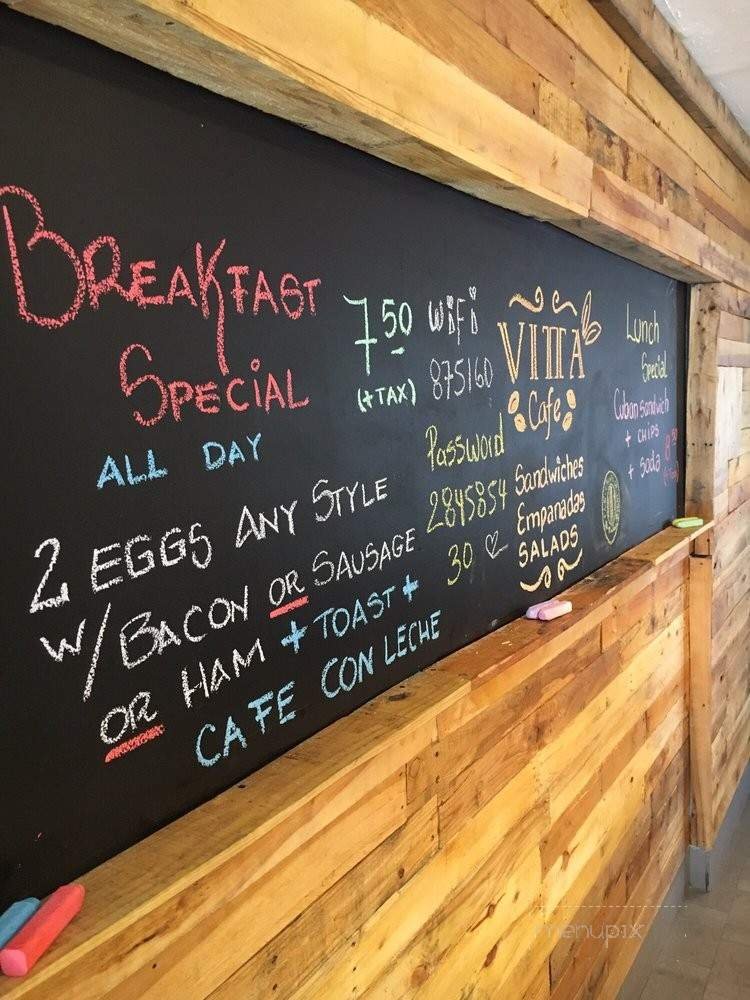 BREAKFAST
SPECIAL
ALL DAY
2 EGGS ANY STYLE
W/BACON OR SAUSAGE
OR HAM + TOAST +
CAFE CON LECHE
7.50
(+TAX)
WiFi
875160
Password
2845854
30
VITTA
Cafe
Sandwiches
Empanadas
SALADS
Lunch
Special
Cuban sandwich
+ CHIPS
+ soda
menupix